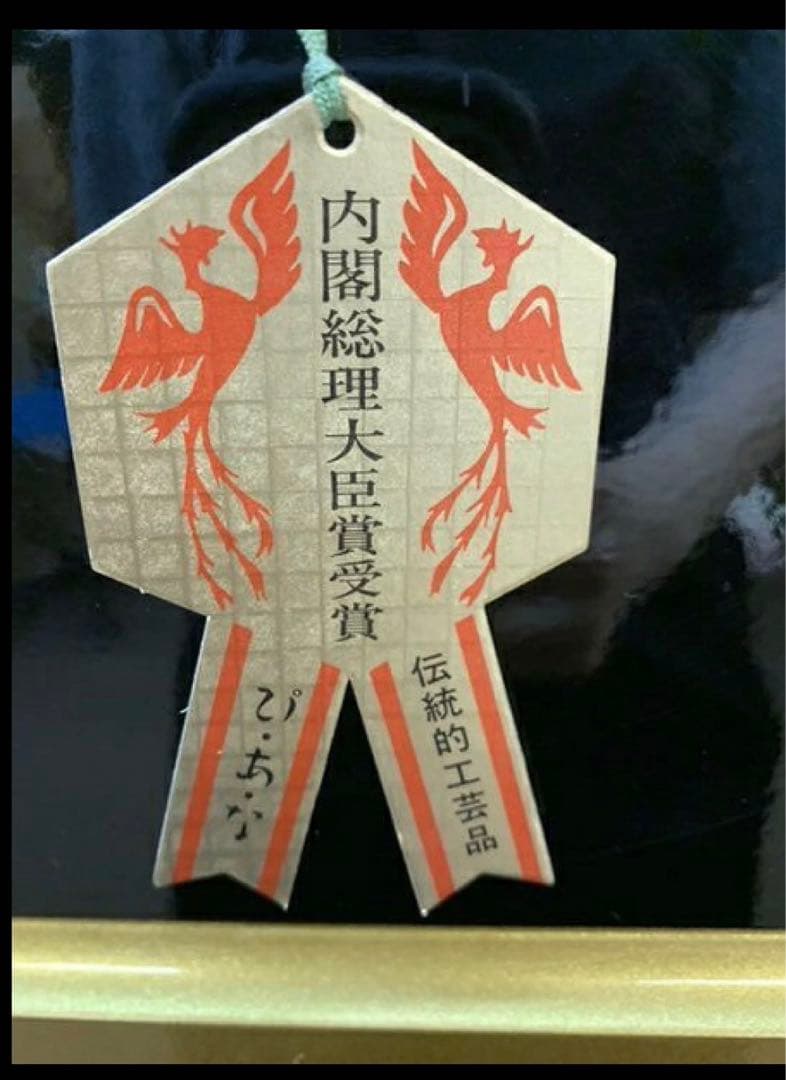 内閣総理大臣賞受賞
伝統的工芸品
ぴ・ち・な